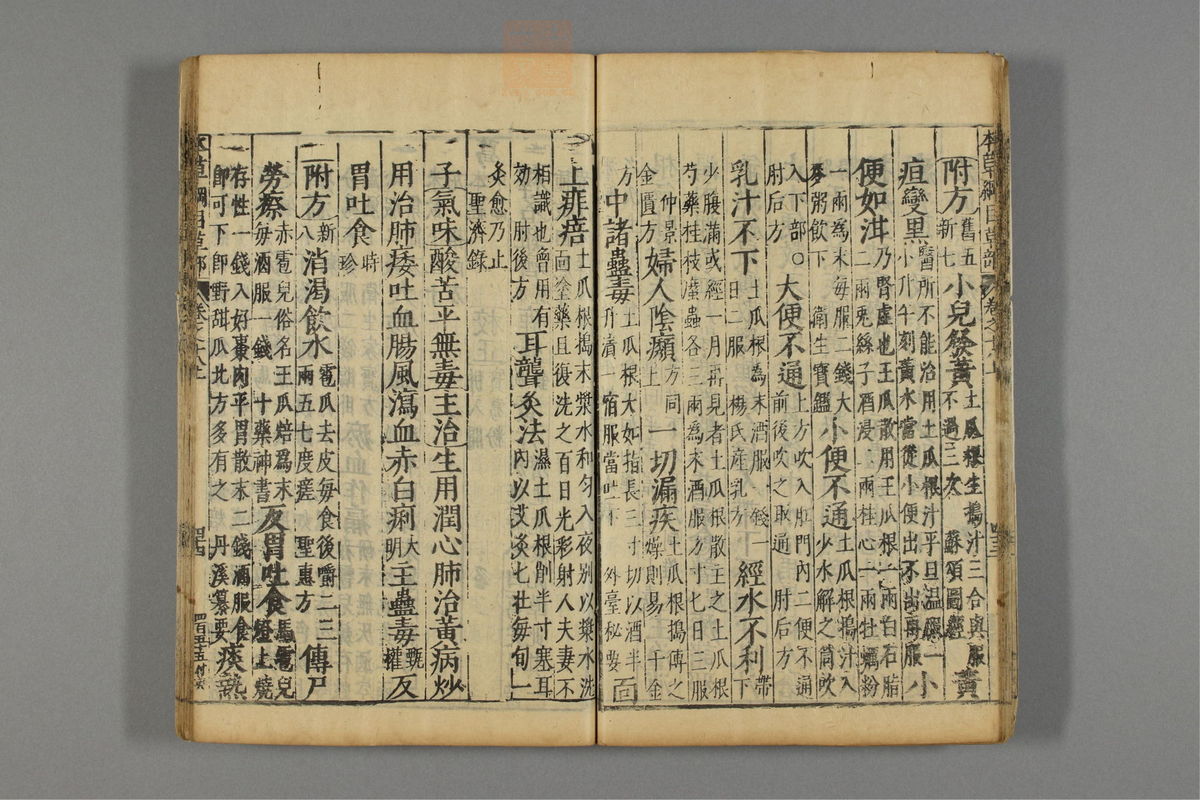 本草綱目草部 卷之十八上 四十三
附方舊五新七小兒發黃土瓜根生搗汁三合與服不過三次蘇頌圖經黃
疸變黑醫所不能治用土瓜根汁平旦溫服一小升午刻黃水當從小便出不出再服小
便如泔乃腎虛也王瓜散用王瓜根一兩白石脂二兩兎絲子酒浸二兩桂心一兩牡蠣粉
一兩為末每服二錢大麥粥飲下衛生寶鑑小便不通土瓜根搗汁入少水解之筒吹
入下部○肘后方大便不通上方吹入肛門內二便不通前後吹之取通肘后方
乳汁不下土瓜根為末酒服一錢一日二服楊氏產乳方經水不利帶下
少腹滿或經一月再見者土瓜根散主之土瓜根芍藥桂枝䗪蟲各三兩為末酒服方寸七日三服
仲景金匱方婦人陰㿗方同上一切漏疾土瓜根搗傅之燥則易千金方
中諸蠱毒土瓜根大如指長三寸切以酒半升漬一宿服當吐下外臺秘要面
上痱㾦土瓜根搗末漿水和匀入夜別以漿水洗面塗藥且復洗之百日光彩射人夫妻不
相識也曾用有效肘後方耳聾灸法濕土瓜根削半寸塞耳內以艾灸七壯每旬一
灸愈乃止聖濟錄
子氣味酸苦平無毒主治生用潤心肺治黃病炒
用治肺痿吐血腸風瀉血赤白痢大明主蠱毒甄權反
胃吐食時珍
附方新八消渴飲水雹瓜去皮每食後嚼二三兩五七度瘥聖惠方傳尸
勞瘵赤雹兒俗名王瓜焙為末每酒服一錢十藥神書反胃吐食馬雹兒燈上燒
存性一錢入好棗肉平胃散末二錢酒服食卽可下卽野甜瓜北方多有之丹溪纂要痰熱
本草綱目草部 卷之十八上 四十四